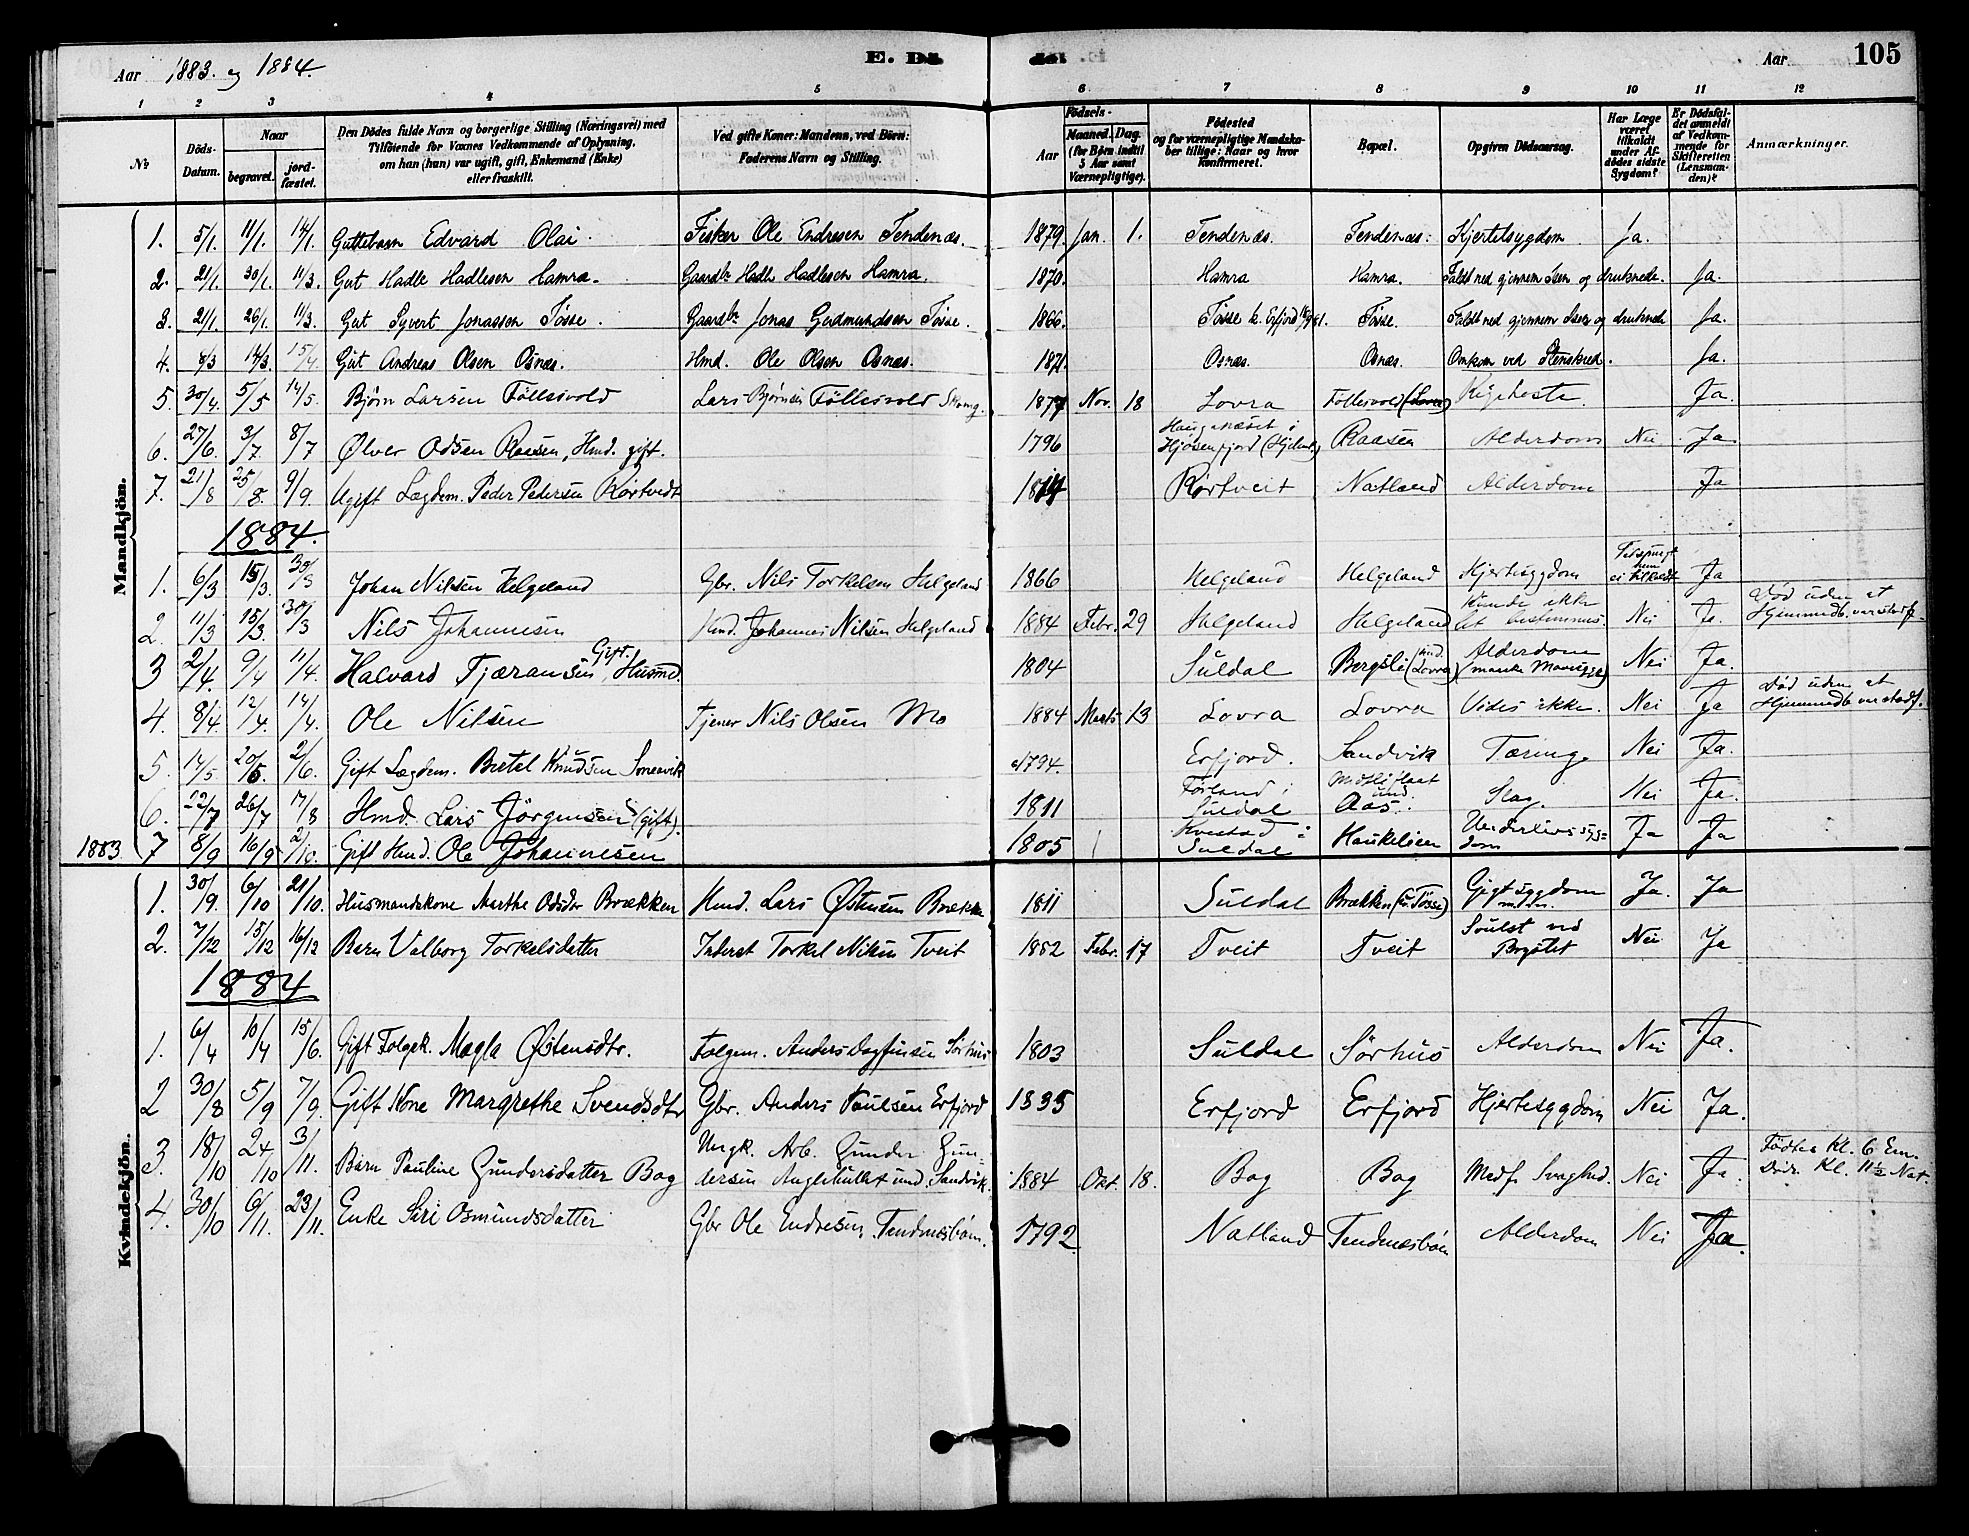 Aar 1883. og 1884.
E. Dö
de.
Aar
105
1 2 3 4 5 6 7 8 9 10 11 12
No
Döds-Datum.
Naar
begravet.
jord-fæstet.
Den Dödes fulde Navn og borgerlige Stilling (Næringsvei) med Tilföiende for Voxnes Vedkommende af Oplysning, om han (hun) var ugift, gift, Enkemand (Enke) eller fraskilt.
Ved gifte Koner: Mandens, ved Börn: Faderens Navn og Stilling.
Födsels-
Aar
Maaned. Dag.
(for Børn indtil 3 Aar samt Værnepligtige).
Födested og for værnepligtige Mandskaber tillige: Naar og hvor konfirmeret.
Bopæl.
Opgiven Dödsaarsag.
Har Læge været tilkaldt under Afdödes sidste Sygdom?
Er Dödsfaldet anmeldt af Vedkommende for Skifteretten (Lensmanden)?
Anmærkninger.
Mandkjön.
1. 5/1. 11/1. 14/1. Guttebarn Edvard Olai. Fisker Ole Endresen Tendenæs. 1879. Jan. 1. Tendenæs. Tendenæs. Kjertelsygdom Ja.
2. 21/1. 30/1. 11/3. Gut Hadle Hadlesen Hamra. Gaardbr. Hadle Hadlesen Hamra. 1870. Hamra Hamra. Faldt ned gjennem Isen og druknede. Ja.
3. 21/1. 26/1. 11/3. Gut Syvert Jonassen Tøsse. Gaardbr. Jonas Gudmundsen Tøsse. 1866. Tøsse k. Erfjord 81. Tøsse. Faldt ned gjennem Isen og druknede Ja.
4. 8/3 14/3. 15/4. Gut Andreas Olsen Osnæs. Hmd. Ole Olsen Osnæs. 1871. Osnæs. Osnæs. Omkom ved Stenskred. Ja.
5. 30/4. 5/5 14/5. Bjørn Larsen Föllesvold Lars Bjørnsen Föllesvold 1877 Nov. 18 Lovra Follesvold (Lovra) Kighoste. Ja.
6. 27/6. 3/7. 8/7 Ølver Odsen Raasen, Hmd. gift. 1796 Haugenæset i Hjøsenfjord (Hjelm.) Raasen Alderdom Nei Ja
7. 21/8 25/8. 9/9. Ugift Lægdem. Peder Pedersen Rørtvedt 1814 Rørtveit Natland Alderdom Ja
1884.
1. 6/3 15/3. 30/3 Johan Nilsen Helgeland Gbr. Nils Torkelsen Helgeland 1866 Helgeland Helgeland Hjertesygdom ei tilkaldt Ja
2. 11/3 15/3. 30/3 Nils Johannesen Hmd. Johannes Nilsen Helgeland 1884 Febr. 29 Helgeland Helgeland Kunde ikke bestemmes. Nei Ja. Död uden at Hjemmedb. var stadf.
3 2/4. 9/4 11/4. Halvard Tjæransen, Gift. Husmd. 1804 Suldal Bergsli (und. Lovra) Alderdom Nei Ja.
4. 8/4. 12/4. 14/4. Ole Nilsen Tjener Nils Olsen Mo 1884 Marts 13 Lovra Lovra Vides ikke. Nei Ja Död uden at Hjemmedb. var stadf.
5. 14/5 20/5. 2/6. Gift Lægdem. Bretel Knudsen 1794. Erfjord. Sandvik Tæring Nei Ja.
6. 22/7 26/7 17/8 Hmd. Lars Jörgensen (gift). 1811 Førland i Suldal und. Aas. Slag. Nei Ja.
1883 7 8/9 16/9 2/10. Gift Hmd. Ole Johannesen 1805 Kvestad i Suldal Haukelien Underlivssygdom Ja Ja
Kvindekjön.
1. 30/9. 6/10 21/10. Husmandskone Marthe Odsdr Brækken Hmd. Lars Østensen Brække 1811 Suldal Brækken (u. Tøsse) Gigtsygdom m.m. Ja. Ja
2. 7/12 15/12 16/12 Barn Valborg Torkelsdatter Inderst Torkel Nilsen Tveit 1882 Febr. 17 Tveit Tveit Svulst ved Brystet Nei Ja
1884
1. 6/4 10/4 15/6. Gift Folgek. Magla Østensdtr. Folgem. Anders Dagfinsen Sörhus 1803 Suldal Sörhus Alderdom Nei Ja.
2 30/8 5/9 7/9. Gift Kone Margrethe Svendsdtr Gbr. Anders Paulsen Erfjord 1835 Erfjord Erfjord Hjertesygdom Nei Ja.
3. 18/10 24/10 3/11. Barn Pauline Gundersdatter Bag Ungk. Arb. Gunder Gundersen und. Sandvik. 1884 Okt. 18. Bag Bag Medf. Svaghed. Nei Ja. Fødtes Kl. 6 Em. Døde Kl. 11½ Nat.
4. 30/10 6/11. 23/11. Enke Siri Osmundsdatter Gbr Ole Endresen, Tendenæsbøen. 1792 Natland Tendenæsbøen Alderdom Nei Ja.